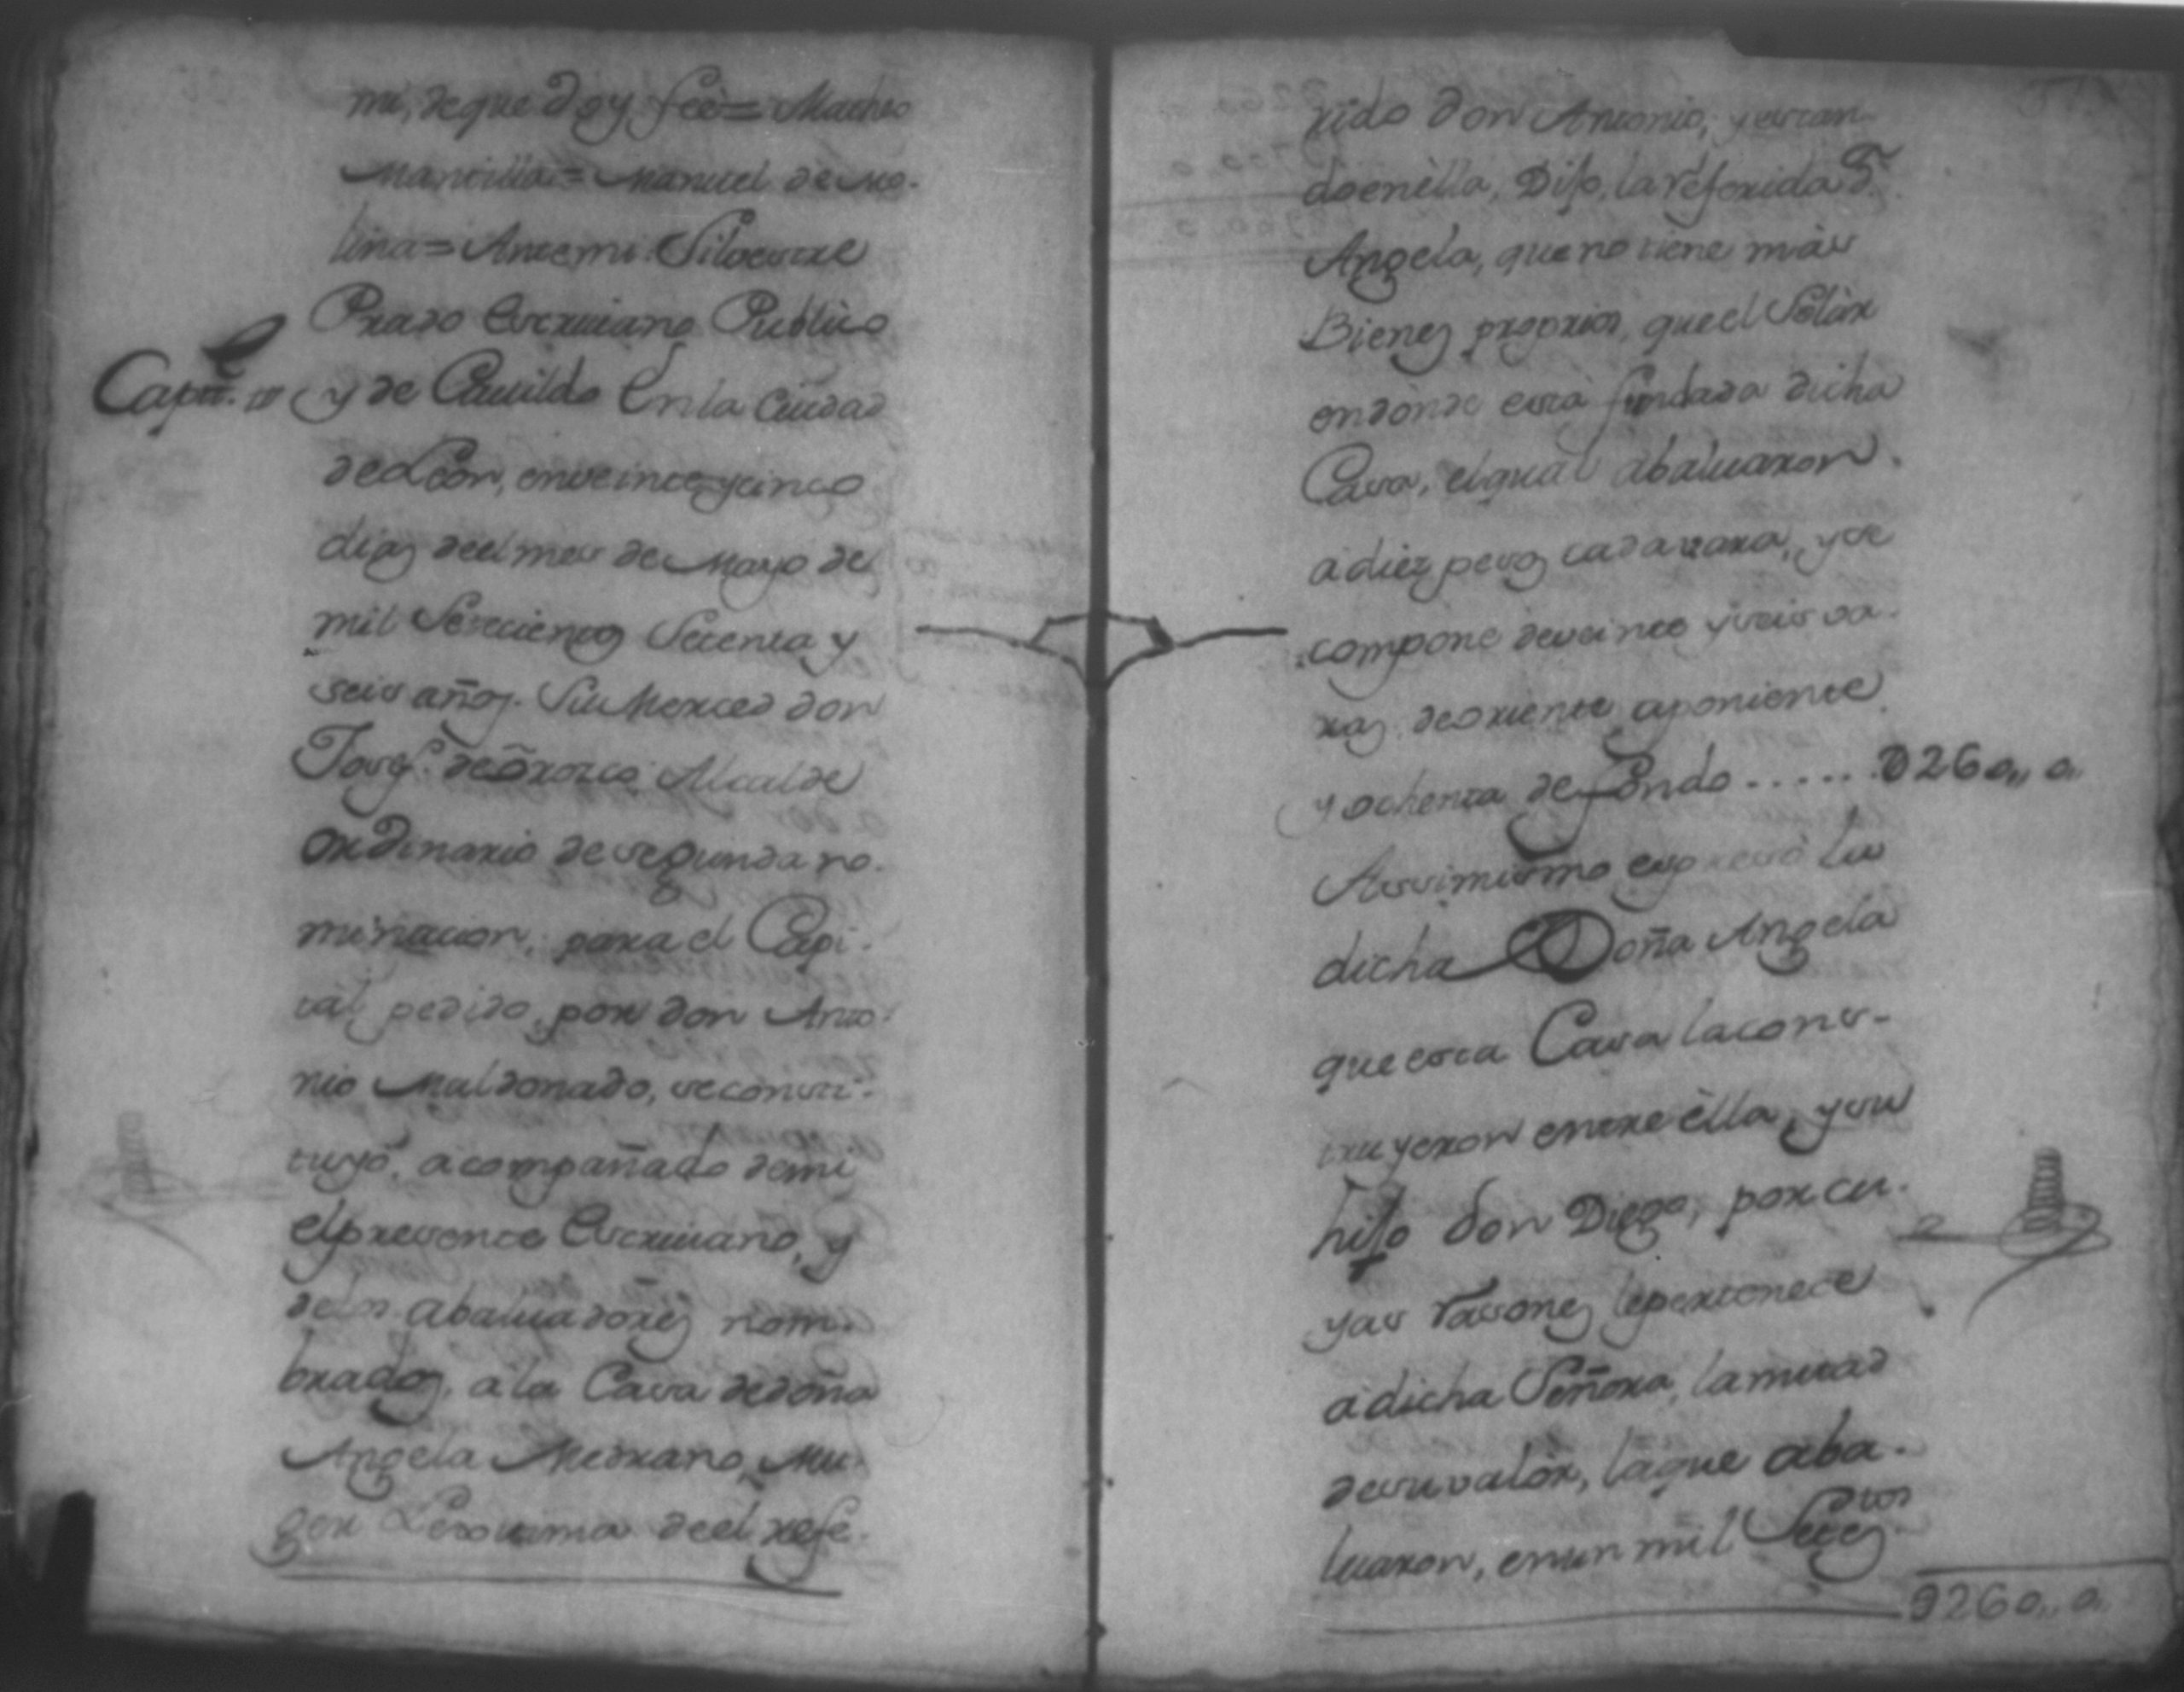 mi, de que doy feè = Matheo
Mansilla = Manuel de Mo-
lina = Ante mi Silvestre
Prado Escriuano Publico
Capit. y de Cauildo En la Ciudad
de Leon, en veinte y cinco
dias deel mes de Mayo de
mil Setecientos Setenta y
seis años. Su Merced don
Josef. de Orozco Alcalde
Ordinario de segunda no-
minacion, para el Capi-
tal pedido por don Anto-
nio Maldonado, se consti-
tuyó, acompañado de mi
el presente Escriuano, y
de los abaluadores nom-
brados, a la Casa de doña
Angela Medrano, Mu-
ger Lexitima deel refe-
rido don Antonio, y estan-
do en èlla, Dijo, la referida D.ª
Angela, que no tiene màs
Bienes proprios, que el Solàr
en donde està fundada dicha
Casa, el qual abaluaron
a diez pesos cada vara, y se
compone de veinte y seis va-
ras de oriente a poniente
y ochenta de fondo ..... D260,, 0,,
Assimismo expressò la
dicha Doña Angela
que esta Casa la cons-
truyeron entre èlla, y su
hijo don Diego, por cu-
yas rasones le pertenece
a dicha Señora, la mitad
de su valòr, la que aba-
luaron, en un mil Setes
dtos
D260,, 0,,